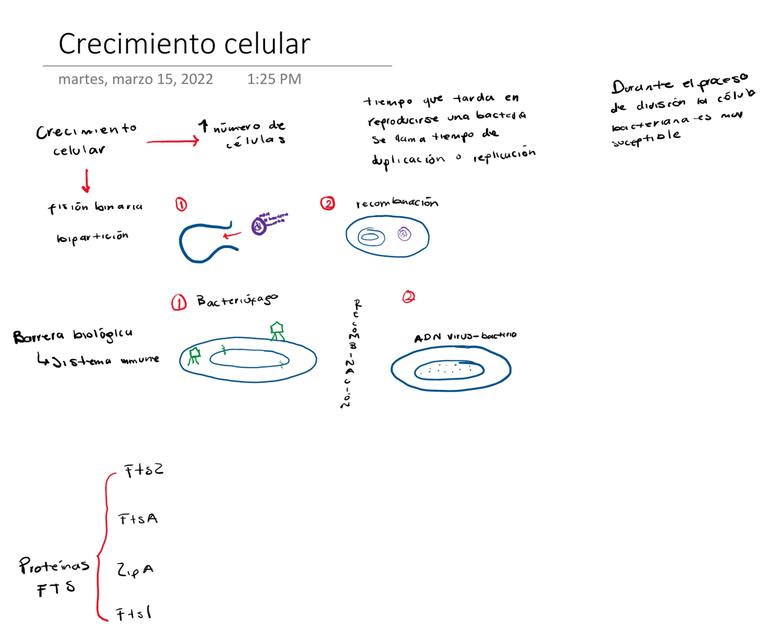 Crecimiento celular
martes, marzo 15, 2022 1:25 PM
Crecimiento
celular
↑ número de
células
tiempo que tarda en
reproducirse una bacteria
se llama tiempo de
duplicación o replicución
Durante el proceso
de división la célula
bacteriana es muy
suceptible
fisión binaria
bipartición
1
2 recombinación
1 Bacteriófago
RECOMBINACIÓN
2
Barrera biológica
↳ sistema inmune
ADN virus-bacteria
Proteínas
FTS
FtsZ
FtsA
ZipA
FtsI